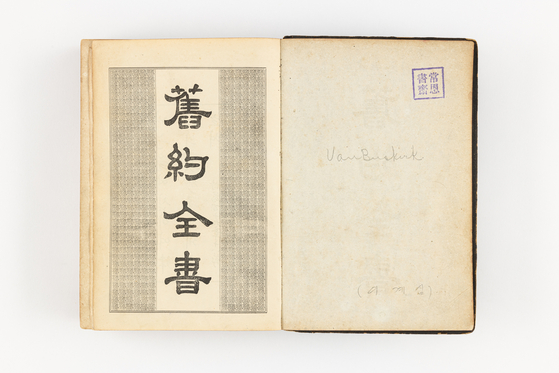 舊約全書
常恩
書齋
VanBuskirk